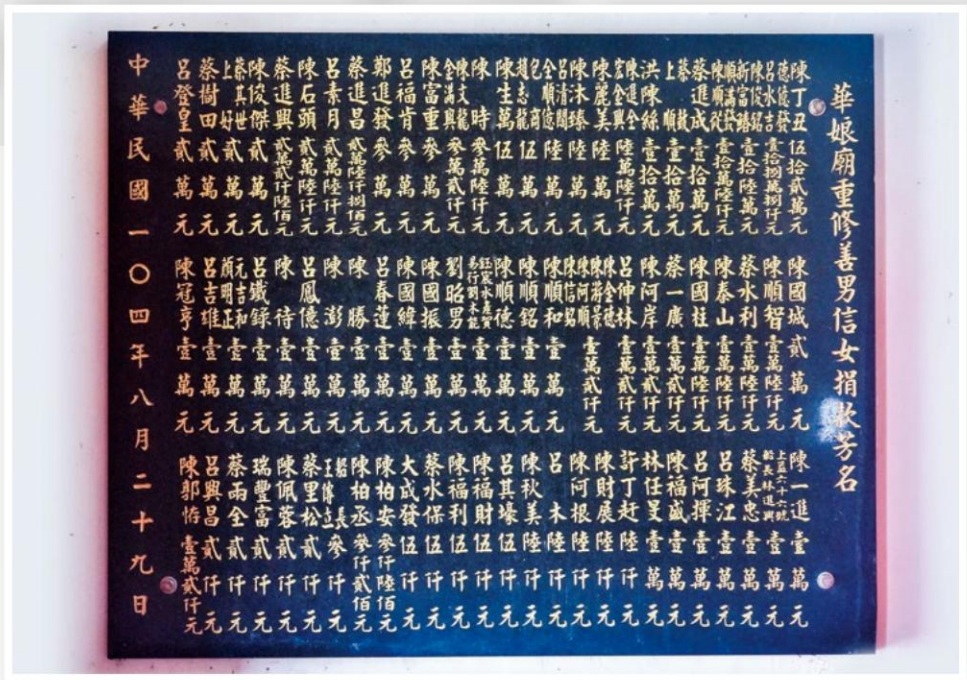 華娘廟重修善男信女捐款芳名
陳丁丑 伍拾貳萬元
德億發 呂水吉 壹拾捌萬捌仟元
陳俊銘 新富勝 壹拾陸萬元
順滿發 陳順從 壹拾萬陸仟元
蔡進成 壹拾萬元
上順 壹拾萬元
洪陳絲 壹拾萬元
陳進全 宏全興 陸萬陸仟元
陳麗美 陸萬元
陳沐臻 陸萬元
全順億 陸萬元
包商 趙志龍
陳生萬 伍萬元
陳時 參萬陸仟元
陳文龍 金滿興 參萬貳仟元
陳富重 參萬元
呂福肯 參萬元
鄭進發 參萬元
蔡進昌 貳萬陸仟捌佰元
呂素月 貳萬陸仟元
陳石頭 貳萬陸仟元
蔡進興 貳萬貳仟陸佰元
陳俊傑 貳萬元
蔡其世 上好 貳萬元
蔡樹田 貳萬元
呂登皇 貳萬元
陳國城 貳萬元
陳順智 壹萬陸仟元
蔡水利 壹萬陸仟元
陳泰山 壹萬陸仟元
陳國柱 壹萬陸仟元
蔡一廣 壹萬貳仟元
陳阿岸 壹萬貳仟元
呂仲林 壹萬貳仟元
陳金德 陳游景 陳阿順 陳信銘 壹萬貳仟元
陳順和 壹萬元
陳順銘 壹萬元
陳順德 壹萬元
鈺宸水產賀 易行劉木龍
劉昭男 壹萬元
陳國振 壹萬元
陳國緯 壹萬元
呂春蓮 壹萬元
陳勝 壹萬元
陳澎 壹萬元
呂鳳億 壹萬元
陳待 壹萬元
呂鐵錄 壹萬元
元吉和 顏明正 壹萬元
呂吉雄 壹萬元
陳冠亨 壹萬元
陳一進 壹萬元
上益六十六號 船長林進興 壹萬元
蔡美忠 壹萬元
呂珠江 壹萬元
呂阿揮 壹萬元
陳福盛 壹萬元
林任呈 壹萬元
許丁赶 陸仟元
陳財展 陸仟元
陳阿根 陸仟元
呂木 陸仟元
陳秋美 陸仟元
呂其壕 伍仟元
陳福財 伍仟元
陳福利 伍仟元
蔡水保 伍仟元
大成發 伍仟元
陳柏安 參仟陸佰元
陳柏丞 參仟貳佰元
船長 參仟元
蔡里松 貳仟元
陳佩蓉 貳仟元
瑞豐富 貳仟元
蔡雨全 貳仟元
呂興昌 貳仟元
陳郭恡 壹萬貳仟元
中華民國一〇四年八月二十九日